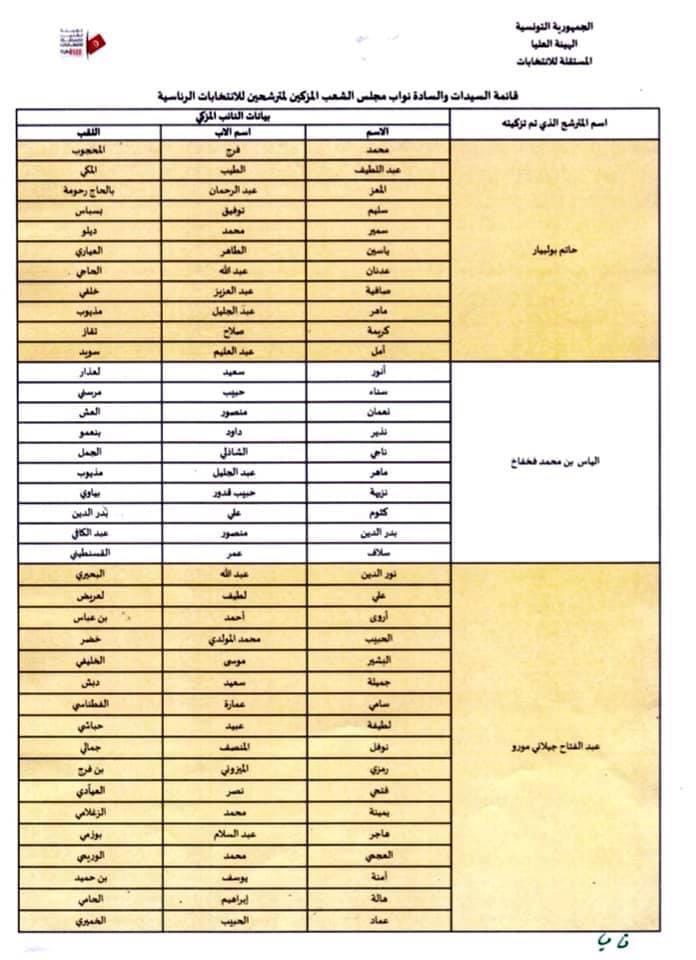 الجمهورية التونسية
الهيئة العليا
المستقلة للانتخابات
قائمة السيدات والسادة نواب مجلس الشعب المزكين لمترشحين للانتخابات الرئاسية
اسم المترشح الذي تم تزكيته بيانات النائب المزكي
الاسم اسم الاب اللقب
محمد فرج المحجوب
عبد اللطيف الطيب المكي
المعز عبد الرحمان بالحاج رحومة
سليم توفيق بسباس
سمير محمد ديلو
ياسين الطاهر العياري
حاتم بولبيار
عدنان عبد الله الحاجي
صافية عبد العزيز خلفي
ماهر عبد الجليل مذيوب
كريمة صلاح تقاز
أمل عبد العليم سويد
أنور سعيد لعذار
سناء حبيب مرسني
نعمان منصور العش
نذير داود بنعمو
ناجي الشاذلي الجمل
الياس بن محمد فخفاخ
ماهر عبد الجليل مذيوب
نزيهة حبيب قدور بياوي
كلثوم علي بدر الدين
بدر الدين منصور عبد الكافي
سلاف عمر القسنطيني
نور الدين عبد الله البحيري
علي لطيف لعريض
أروى أحمد بن عباس
الحبيب محمد المولدي خضر
البشير موسى الخليفي
جميلة سعيد دبش
سامي عمارة الفطناسي
لطيفة عبيد حباشي
عبد الفتاح جيلاني مورو
نوفل المنصف جمالي
رمزي الميزوني بن فرج
فتحي نصر العيادي
يمينة محمد الزغلامي
هاجر عبد السلام بوزمي
العجمي محمد الوريمي
آمنة يوسف بن حميد
هالة إبراهيم الحامي
عماد الحبيب الخميري